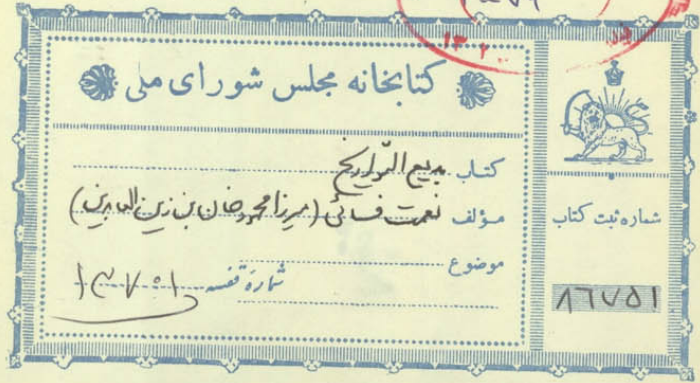 کتابخانه مجلس شورای ملی
کتاب بدیع التواریخ
مؤلف نعمت فسائی (میرزا محمود خان بن زین العابدین)
موضوع
شماره قفسه ۱۳۷۵۱
شماره ثبت کتاب
۸۶۷۵۱